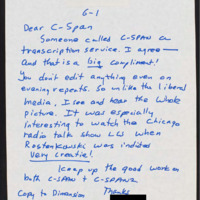 6-1
Dear C-Span
Someone called C-SPAN a
transcription service. I agree —
And that is a big compliment!
You don't edit anything even on
evening repeats. So unlike the liberal
media, I see and hear the whole
picture. It was especially
interesting to watch the Chicago
radio talk show LIVE when
Rostenkowski was indited
Very Creative!
Keep up the good work on
both C-SPAN + C-SPAN2
Thanks
Copy to Dimension